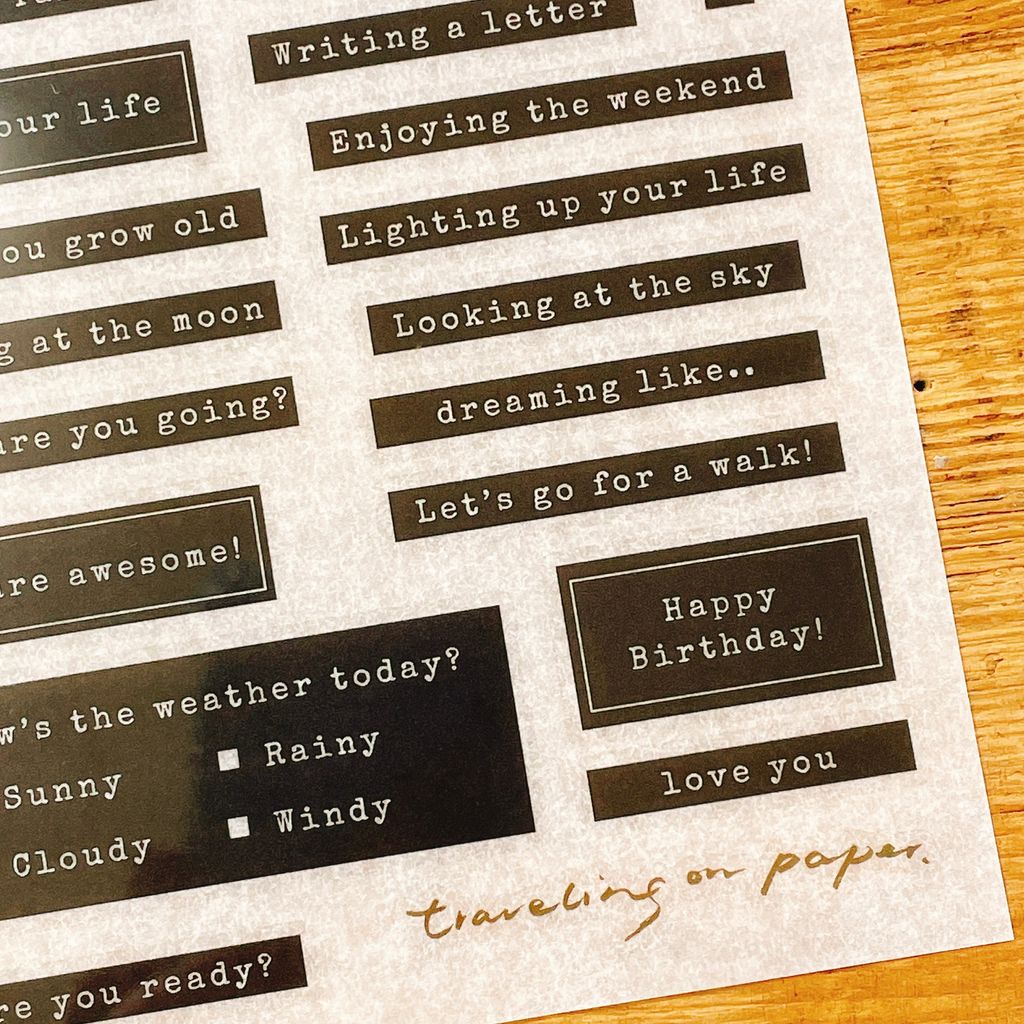 our life
ou grow old
g at the moon
are you going?
are awesome!
w's the weather today?
Sunny
Rainy
Cloudy
Windy
re you ready?
Writing a letter
Enjoying the weekend
Lighting up your life
Looking at the sky
dreaming like..
Let's go for a walk!
Happy
Birthday!
love you
traveling on paper.